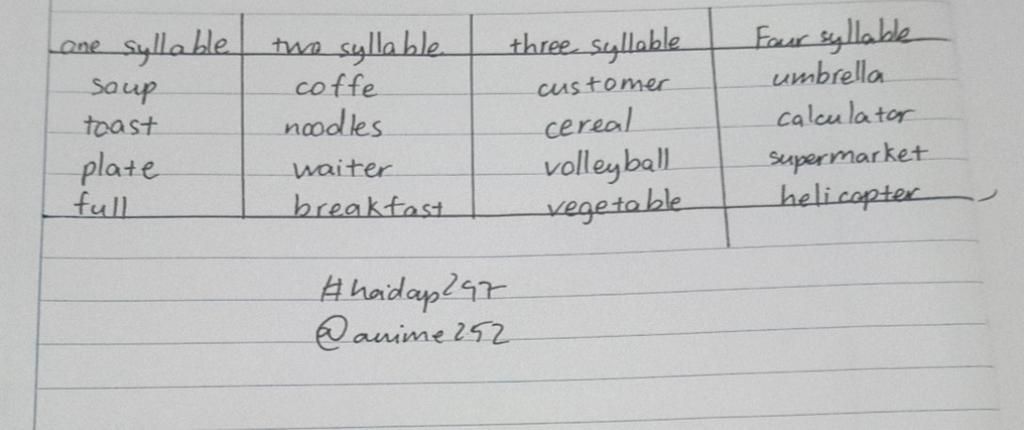 one syllable two syllable three syllable Four syllable
soup coffe customer umbrella
toast noodles cereal calculator
plate waiter volleyball supermarket
full breakfast vegetable helicopter
#haidap297
@anime252